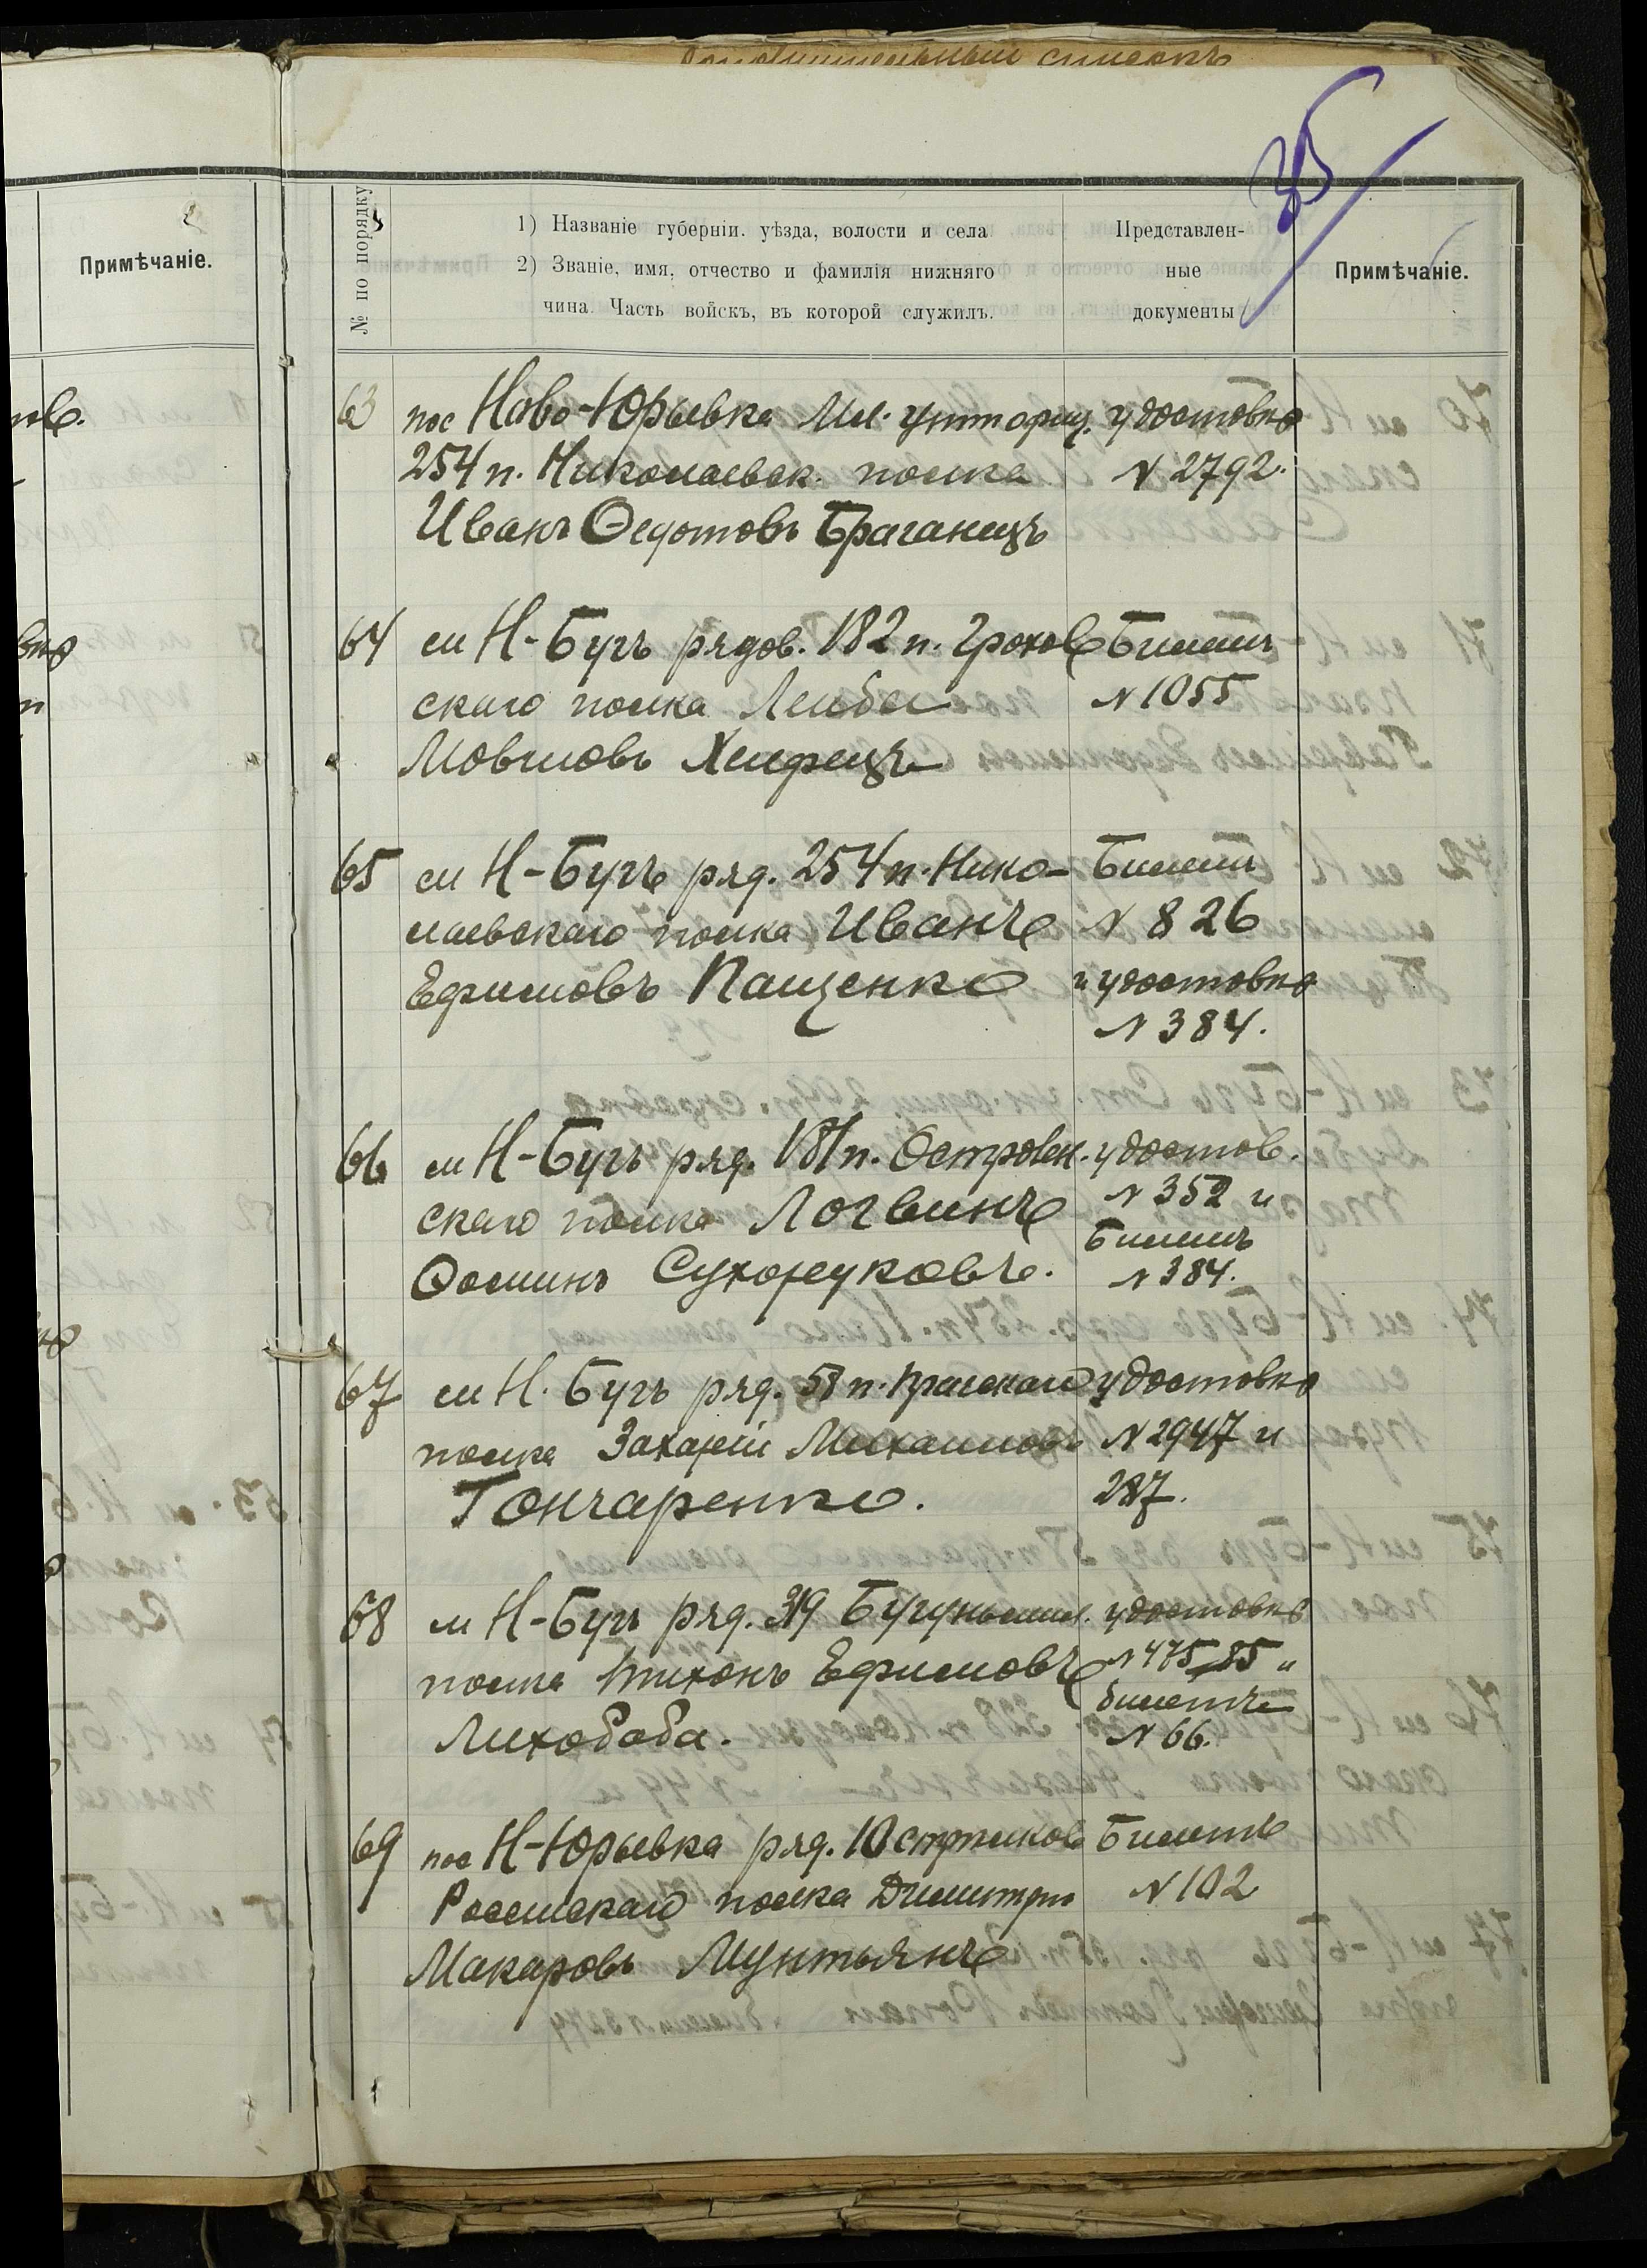 35
Примѣчаніе.
№ по порядку
1) Названіе губерніи. уѣзда, волости и села
2) Званіе, имя, отчество и фамилія нижняго
чина. Часть войскъ, въ которой служилъ.
Представлен-
ные
документы
Примѣчаніе.
63 пос Ново-Юрьевка Мл. унт офиц. удостовѣ
254 п. Николаевск. полка № 2792.
Иванъ Ѳедотовъ Браганецъ
64 м Н-Бугъ рядов. 182 п. Грохов Билетъ
скаго полка Лейба № 1055
Мовшовъ Хейфецъ
65 м Н-Бугъ ряд. 254 п. Нико- Билетъ
лаевскаго полка Иванъ № 826
Ефимовъ Пащенко и удостовѣ
№ 384.
66 м Н-Бугъ ряд. 181 п. Островск. удостов.
скаго полка Логвинъ № 352 и
Билетъ
Ѳоминъ Сухоруковъ. № 384.
67 м Н. Бугъ ряд. 58 п. Прагскаго удостовѣ
полка Захарій Михайловъ № 2947 и
Гончаренко. 287.
68 м Н-Бугъ ряд. 319 Бугульмин. удостовѣ
полка Тихонъ Ефимовъ № 475,85 и
билетъ
Лихобаба. № 66.
69 пос Н-Юрьевка ряд. 10 стрѣлков Билетъ
полка Дмитрій № 102
Макаровъ Мунтьянъ